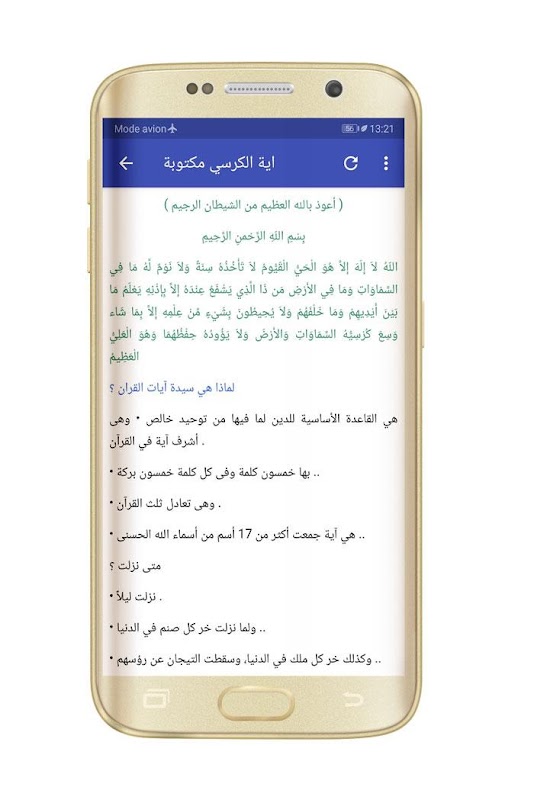 Mode avion 56 13:21
اية الكرسي مكتوبة
( أعوذ بالله العظيم من الشيطان الرجيم )
بِسْمِ اللهِ الرَّحْمنِ الرَّحِيمِ
اللّهُ لاَ إِلَهَ إِلاَّ هُوَ الْحَيُّ الْقَيُّومُ لاَ تَأْخُذُهُ سِنَةٌ وَلاَ نَوْمٌ لَّهُ مَا فِي
السَّمَاوَاتِ وَمَا فِي الأَرْضِ مَن ذَا الَّذِي يَشْفَعُ عِنْدَهُ إِلاَّ بِإِذْنِهِ يَعْلَمُ مَا
بَيْنَ أَيْدِيهِمْ وَمَا خَلْفَهُمْ وَلاَ يُحِيطُونَ بِشَيْءٍ مِّنْ عِلْمِهِ إِلاَّ بِمَا شَاء
وَسِعَ كُرْسِيُّهُ السَّمَاوَاتِ وَالأَرْضَ وَلاَ يَؤُودُهُ حِفْظُهُمَا وَهُوَ الْعَلِيُّ
الْعَظِيمُ
لماذا هي سيدة آيات القران ؟
هي القاعدة الأساسية للدين لما فيها من توحيد خالص • وهى
أشرف آية في القرآن .
• بها خمسون كلمة وفى كل كلمة خمسون بركة ..
• وهى تعادل ثلث القرآن .
• هي آية جمعت أكثر من 17 أسم من أسماء الله الحسنى ..
متى نزلت ؟
• نزلت ليلاً .
• ولما نزلت خر كل صنم في الدنيا ..
• وكذلك خر كل ملك في الدنيا، وسقطت التيجان عن رؤسهم ..